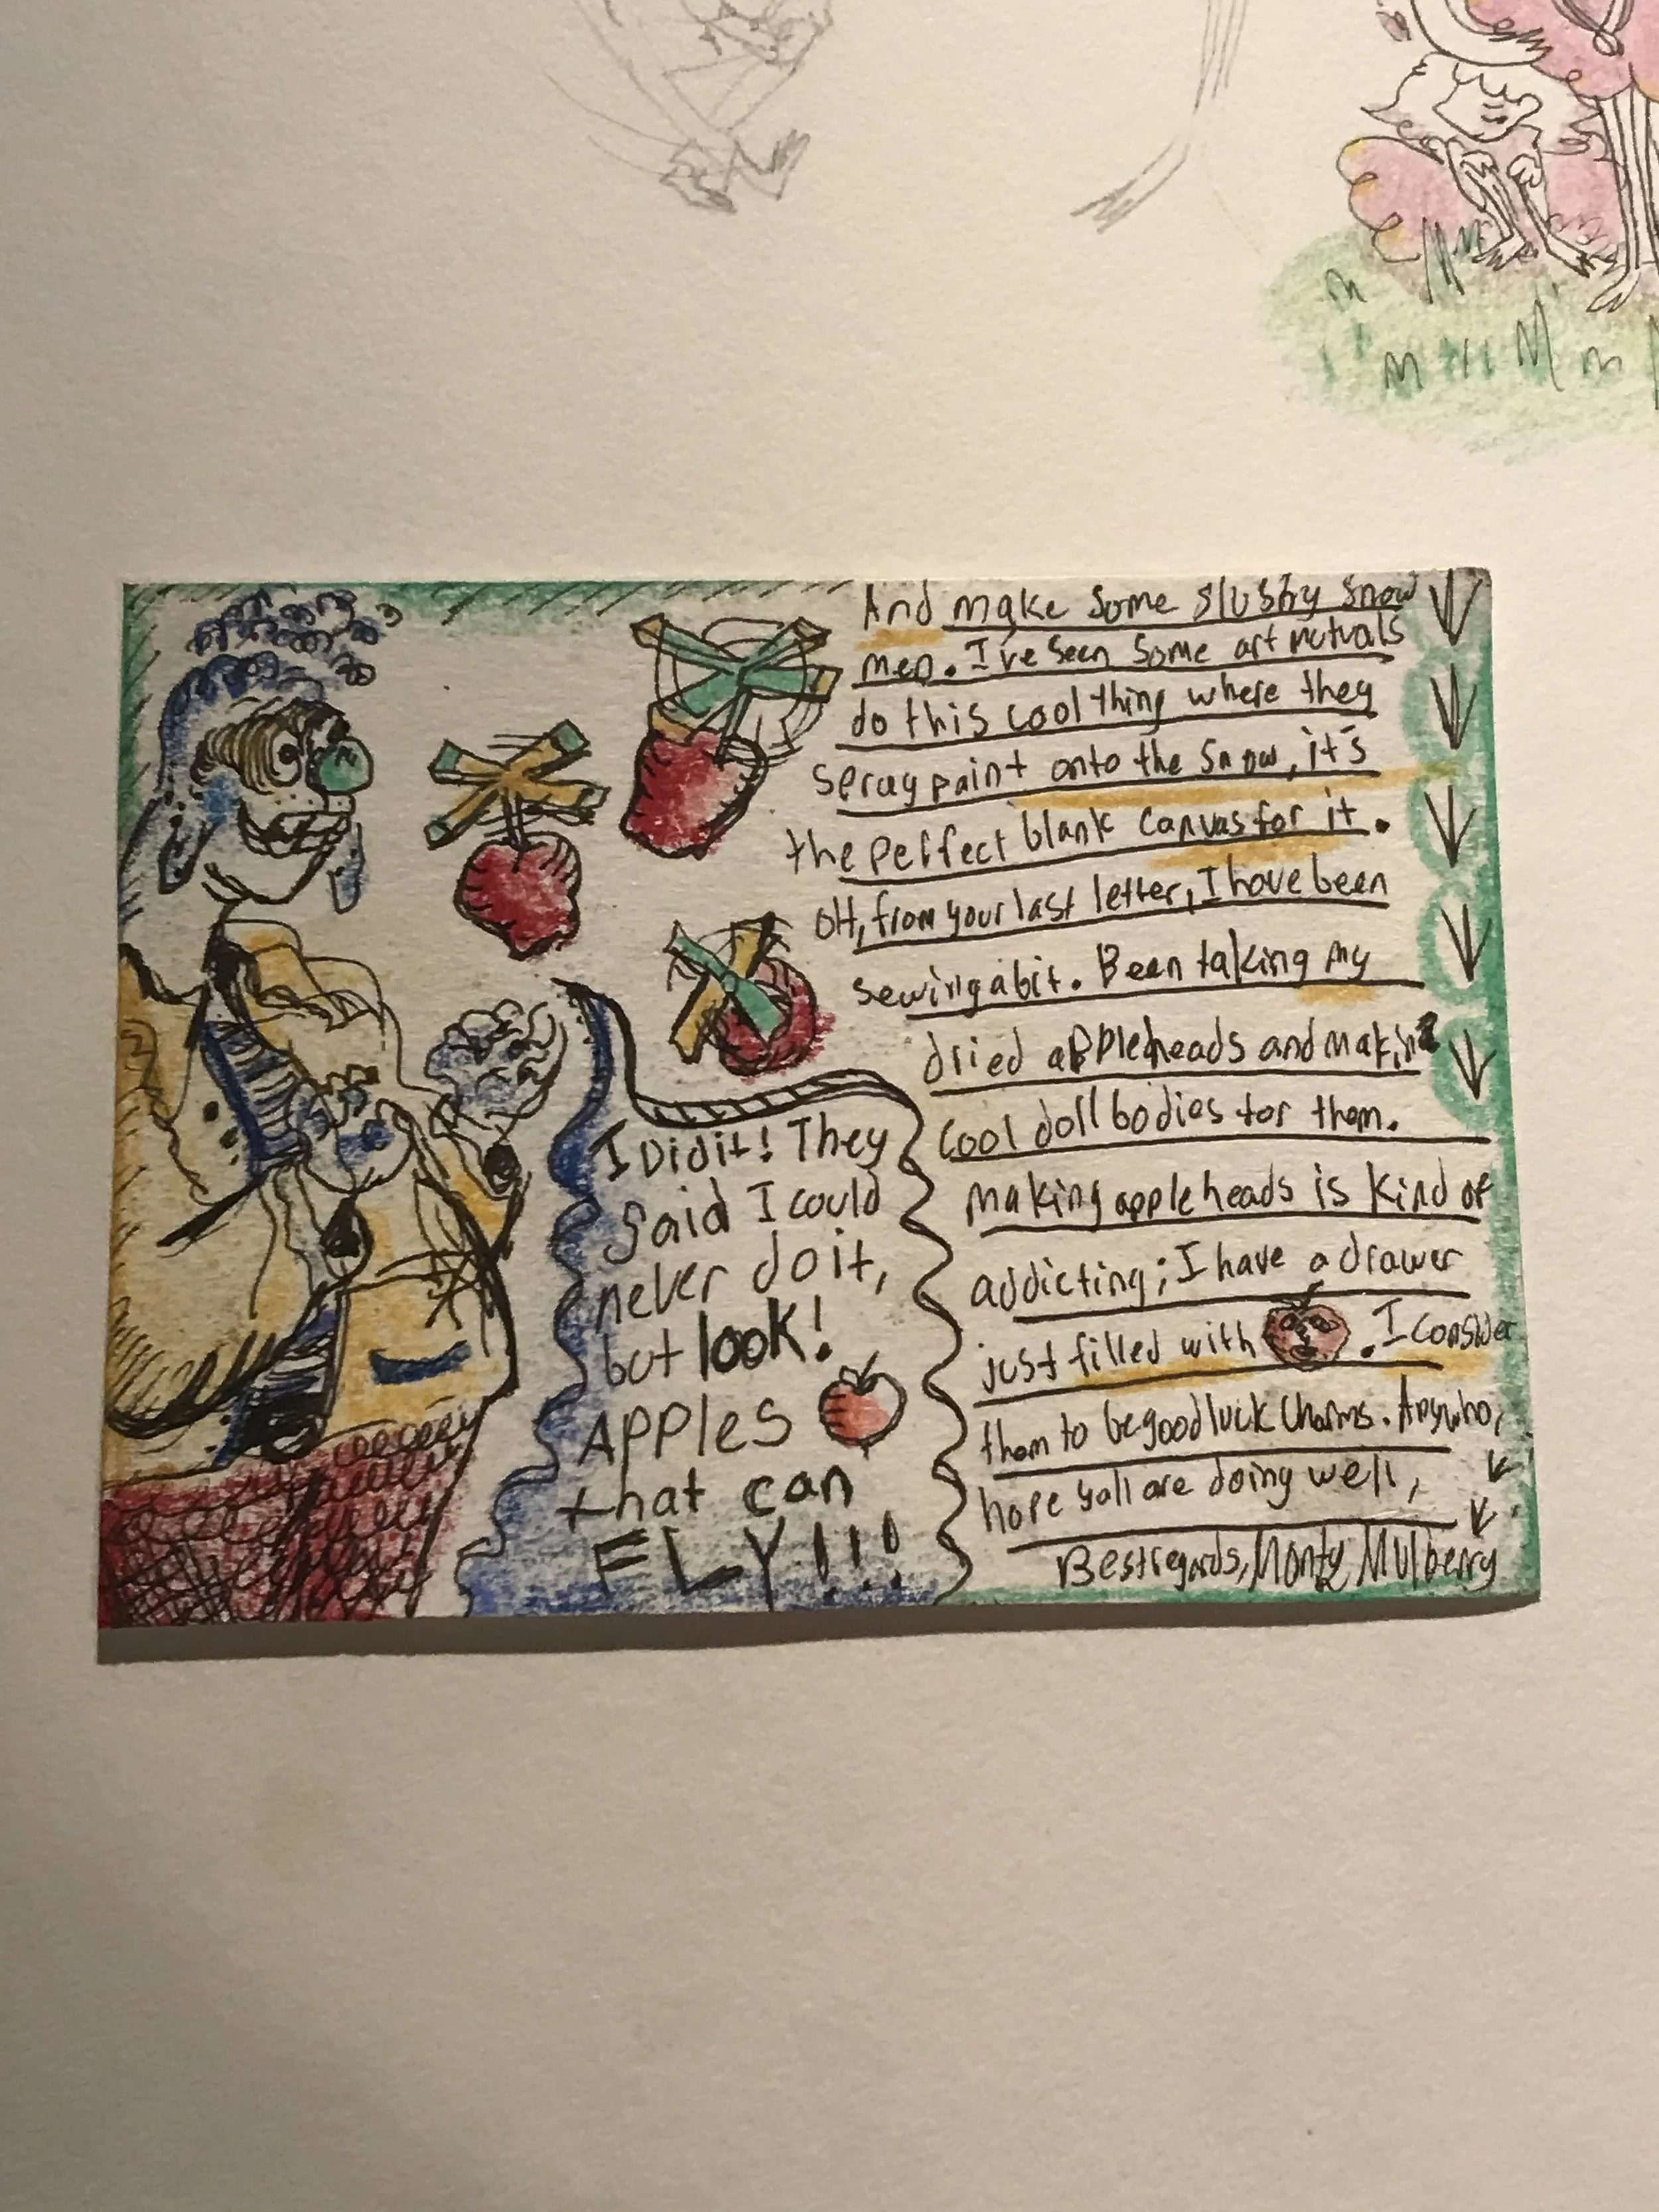 I Did it! They
said I could
never do it,
but look!
Apples
that can
FLY!!!
And make some slushy snow
men. I've seen some art mutuals
do this cool thing where they
spray paint onto the snow, it's
the perfect blank canvas for it.
OH, from your last letter, I have been
sewing a bit. Been taking my
dried appleheads and making
cool doll bodies for them.
Making apple heads is kind of
addicting; I have a drawer
just filled with . I consider
them to be good luck charms. Anywho,
hope yall are doing well,
Best regards, Monty Mulberry